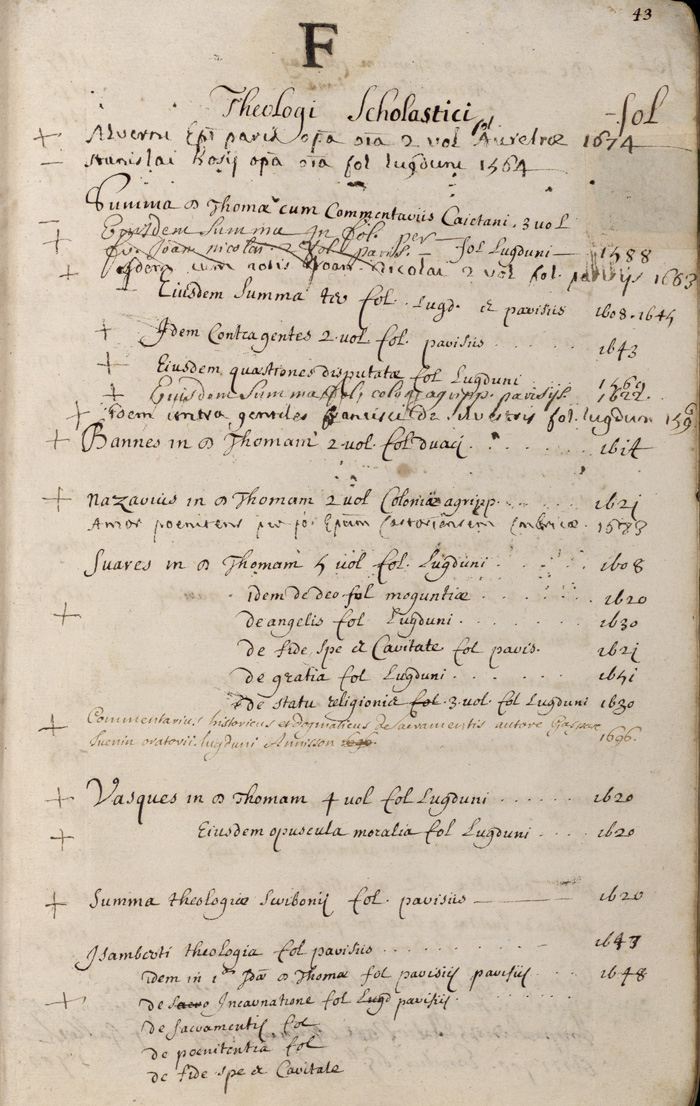 43
F
Theologi Scholastici fol
+ Alverni Epī paris opā oīa 2 vol Aureliæ 1674
– Stanislai hosij opā oīa fol lugduni 1564
Summa D Thomæ cum Commentariis Caietani. 3 vol
Ejusdem Summa in fol. per
fr. Joan. nicolai. 2 vol. paris. – fol Lugduni – 1588
+ cum notis Joan. Nicolai 2 vol fol. parisijs 1663
+ Eiusdem Summa fol. Lugd. et parisiis 1608. 1645
+ Idem Contra gentes 2 vol fol. parisiis 1643
+ Eiusdem quæstiones disputatæ fol Lugduni 1569
+ Ejusdem Summa fol; colon agripp. parisijs. 1622
+ Idem contra gentiles francisci de silvestris fol. lugduni
+ Bannes in D Thomam 2 vol. fol duaci 1614
+ Nazarius in D Thomam 2 vol Coloniæ agripp. 1621
Amor poenitens per jo: Epum Castoriensem Embricæ. 1683
Suares in D Thomam 5 vol fol. Lugduni 1608
idem de deo fol moguntiæ 1620
+ de angelis fol Lugduni 1630
de fide, spe et Caritate fol paris. 1621
de gratia fol Lugduni 1651
de statu religionis fol 3 vol. fol Lugduni 1630
+ Commentarius historicus et dogmaticus de sacramentis autore Gaspare
Juenin oratorii. lugduni Anisson 1696.
+ Vasques in D Thomam 4 vol fol Lugduni 1620
+ Eiusdem opuscula moralia fol Lugduni 1620
+ Summa theologiæ Scribonij fol. parisiis 1620
Isamberti theologia fol parisiis 1643
idem in 1am D Thomæ fol parisiis parisiis 1648
+ de sacro Incarnatione fol Lugd parisiis
de sacramentis fol
de poenitentia fol
de fide spe et Caritate